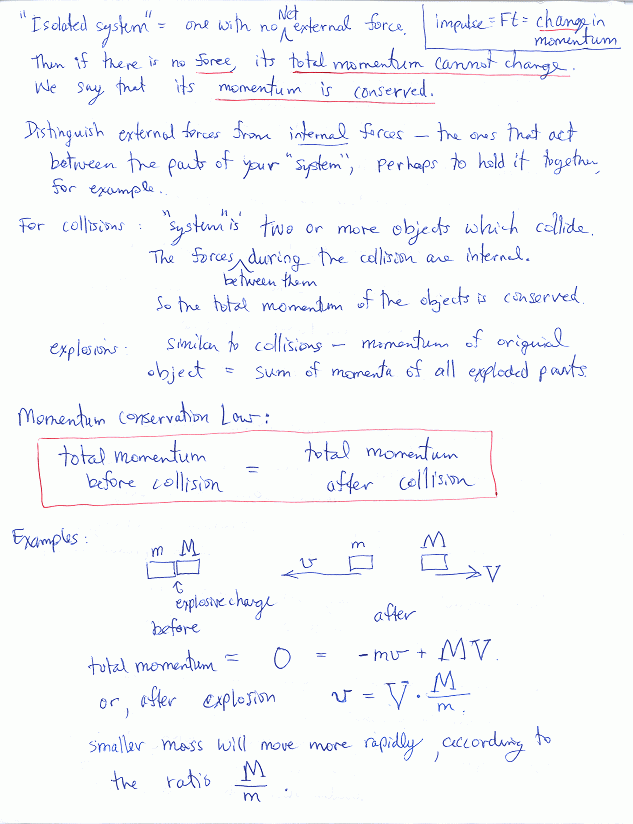 "Isolated system" = one with no Net external force.
impulse = Ft = change in
momentum
Then if there is no force, its total momentum cannot change.
We say that its momentum is conserved.
Distinguish external forces from internal forces – the ones that act
between the parts of your "system", perhaps to hold it together,
for example.
For collisions : "system" is two or more objects which collide.
The forces between them during the collision are internal.
So the total momentum of the objects is conserved.
explosions. Similar to collisions – momentum of original
object = sum of momenta of all exploded parts.
Momentum Conservation Law:
total momentum = total momentum
before collision after collision
Examples:
m M v m M V
explosive charge
before after
total momentum = 0 = -mv + MV.
or, after explosion v = V · M/m.
smaller mass will move more rapidly, according to
the ratio M/m.